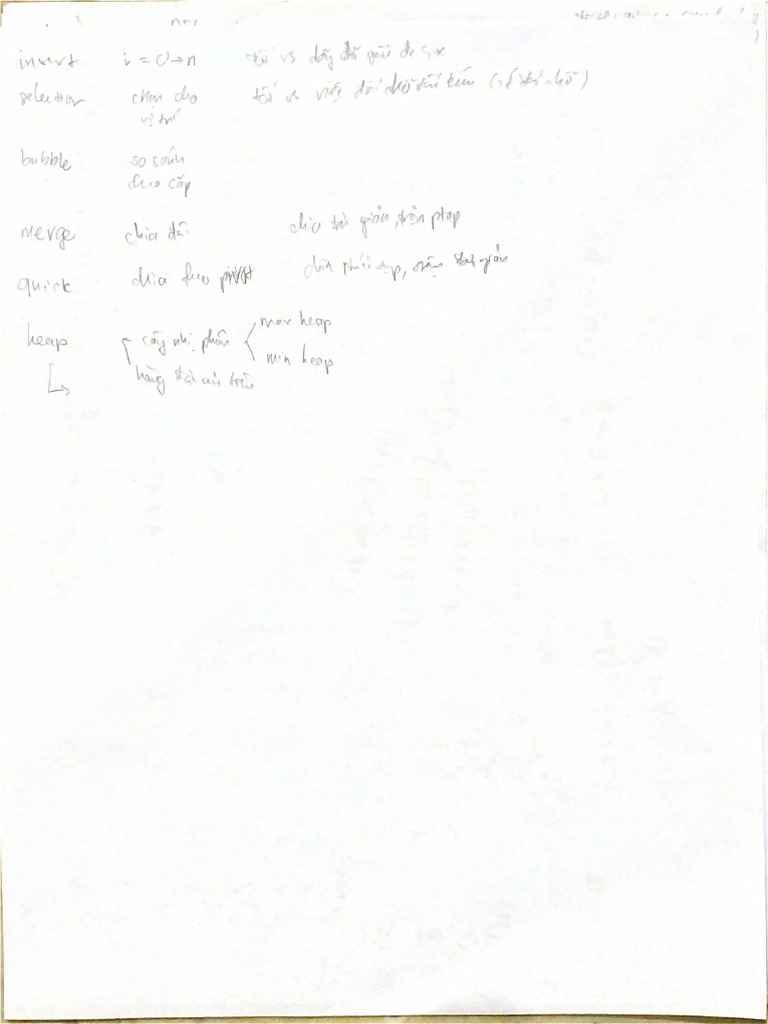 insert i = 0 → n tốt vs dãy đã gần đc sx
selection chọn cho tốt vs việc đổi chỗ tốn kém
vị trí
bubble so sánh
theo cặp
merge chia đôi chia đơn giản, trộn ptạp
quick chia theo pivot chia phức tạp, trộn đơn giản
heap cây nhị phân max heap
min heap
hàng đợi ưu tiên